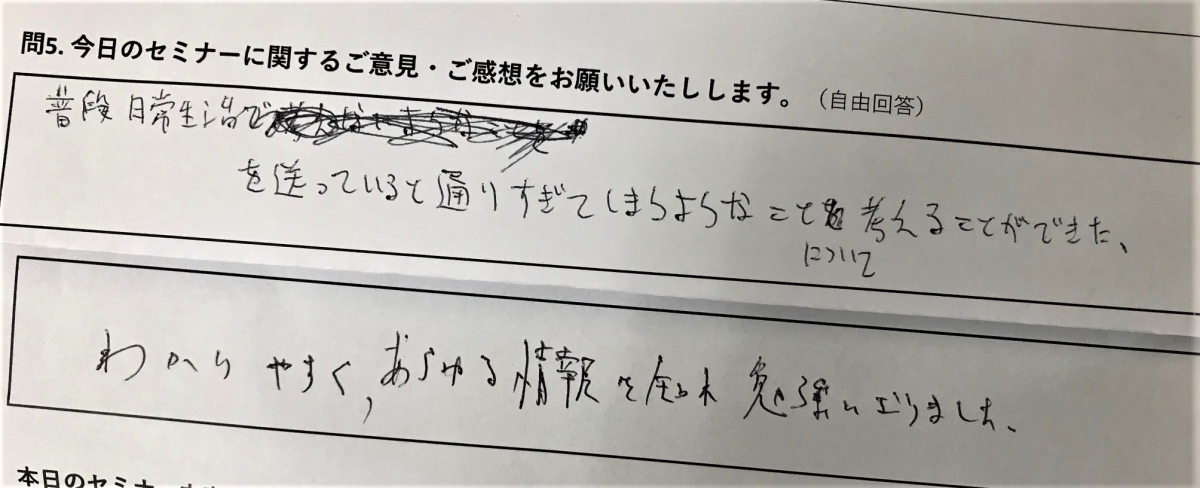 問5. 今日のセミナーに関するご意見・ご感想をお願いいたしします。（自由回答）
普段日常生活で
を送っていると通りすぎてしまうようなこと考えることができた、
について
わかりやすく,あらゆる情報を知れ勉強になりました、
本日のセミナー